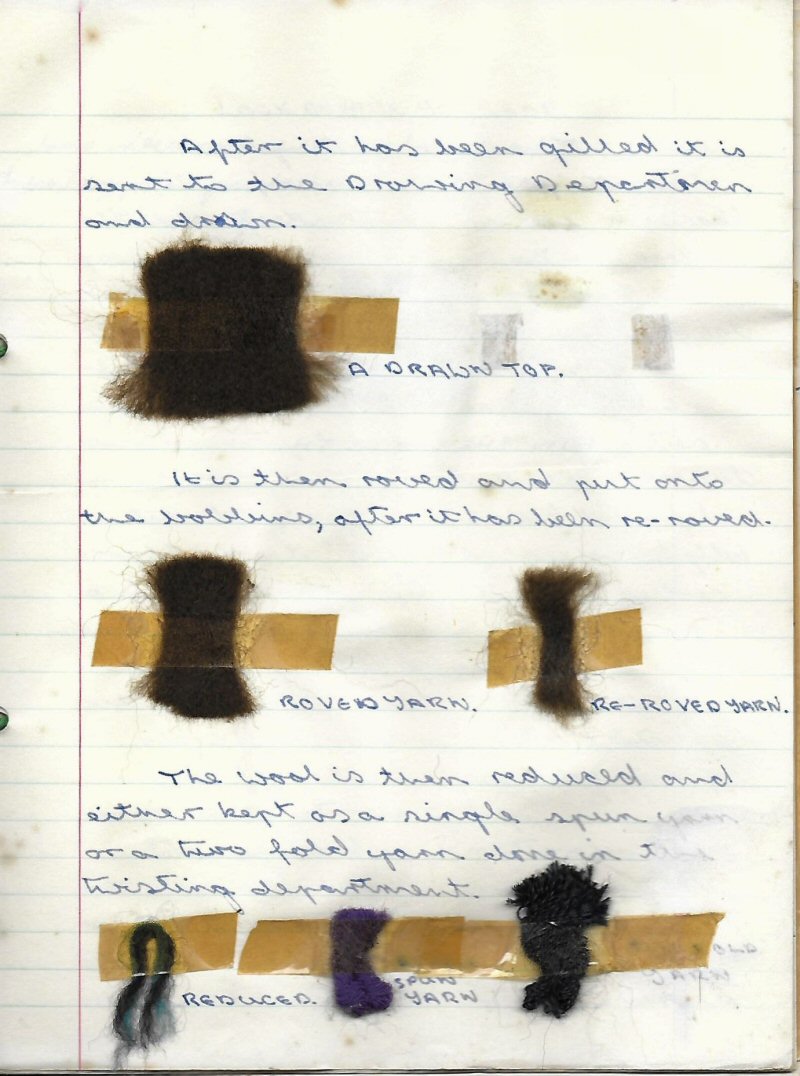 After it has been gilled it is
sent to the Drawing Departmen
and drawn.
A DRAWN TOP.
It is then roved and put onto
the bobbins, after it has been re-roved.
ROVED YARN.
RE-ROVED YARN.
The wool is then reduced and
either kept as a single spun yarn
or a two fold yarn done in the
twisting department.
REDUCED.
SPUN
YARN
OLD
YARN